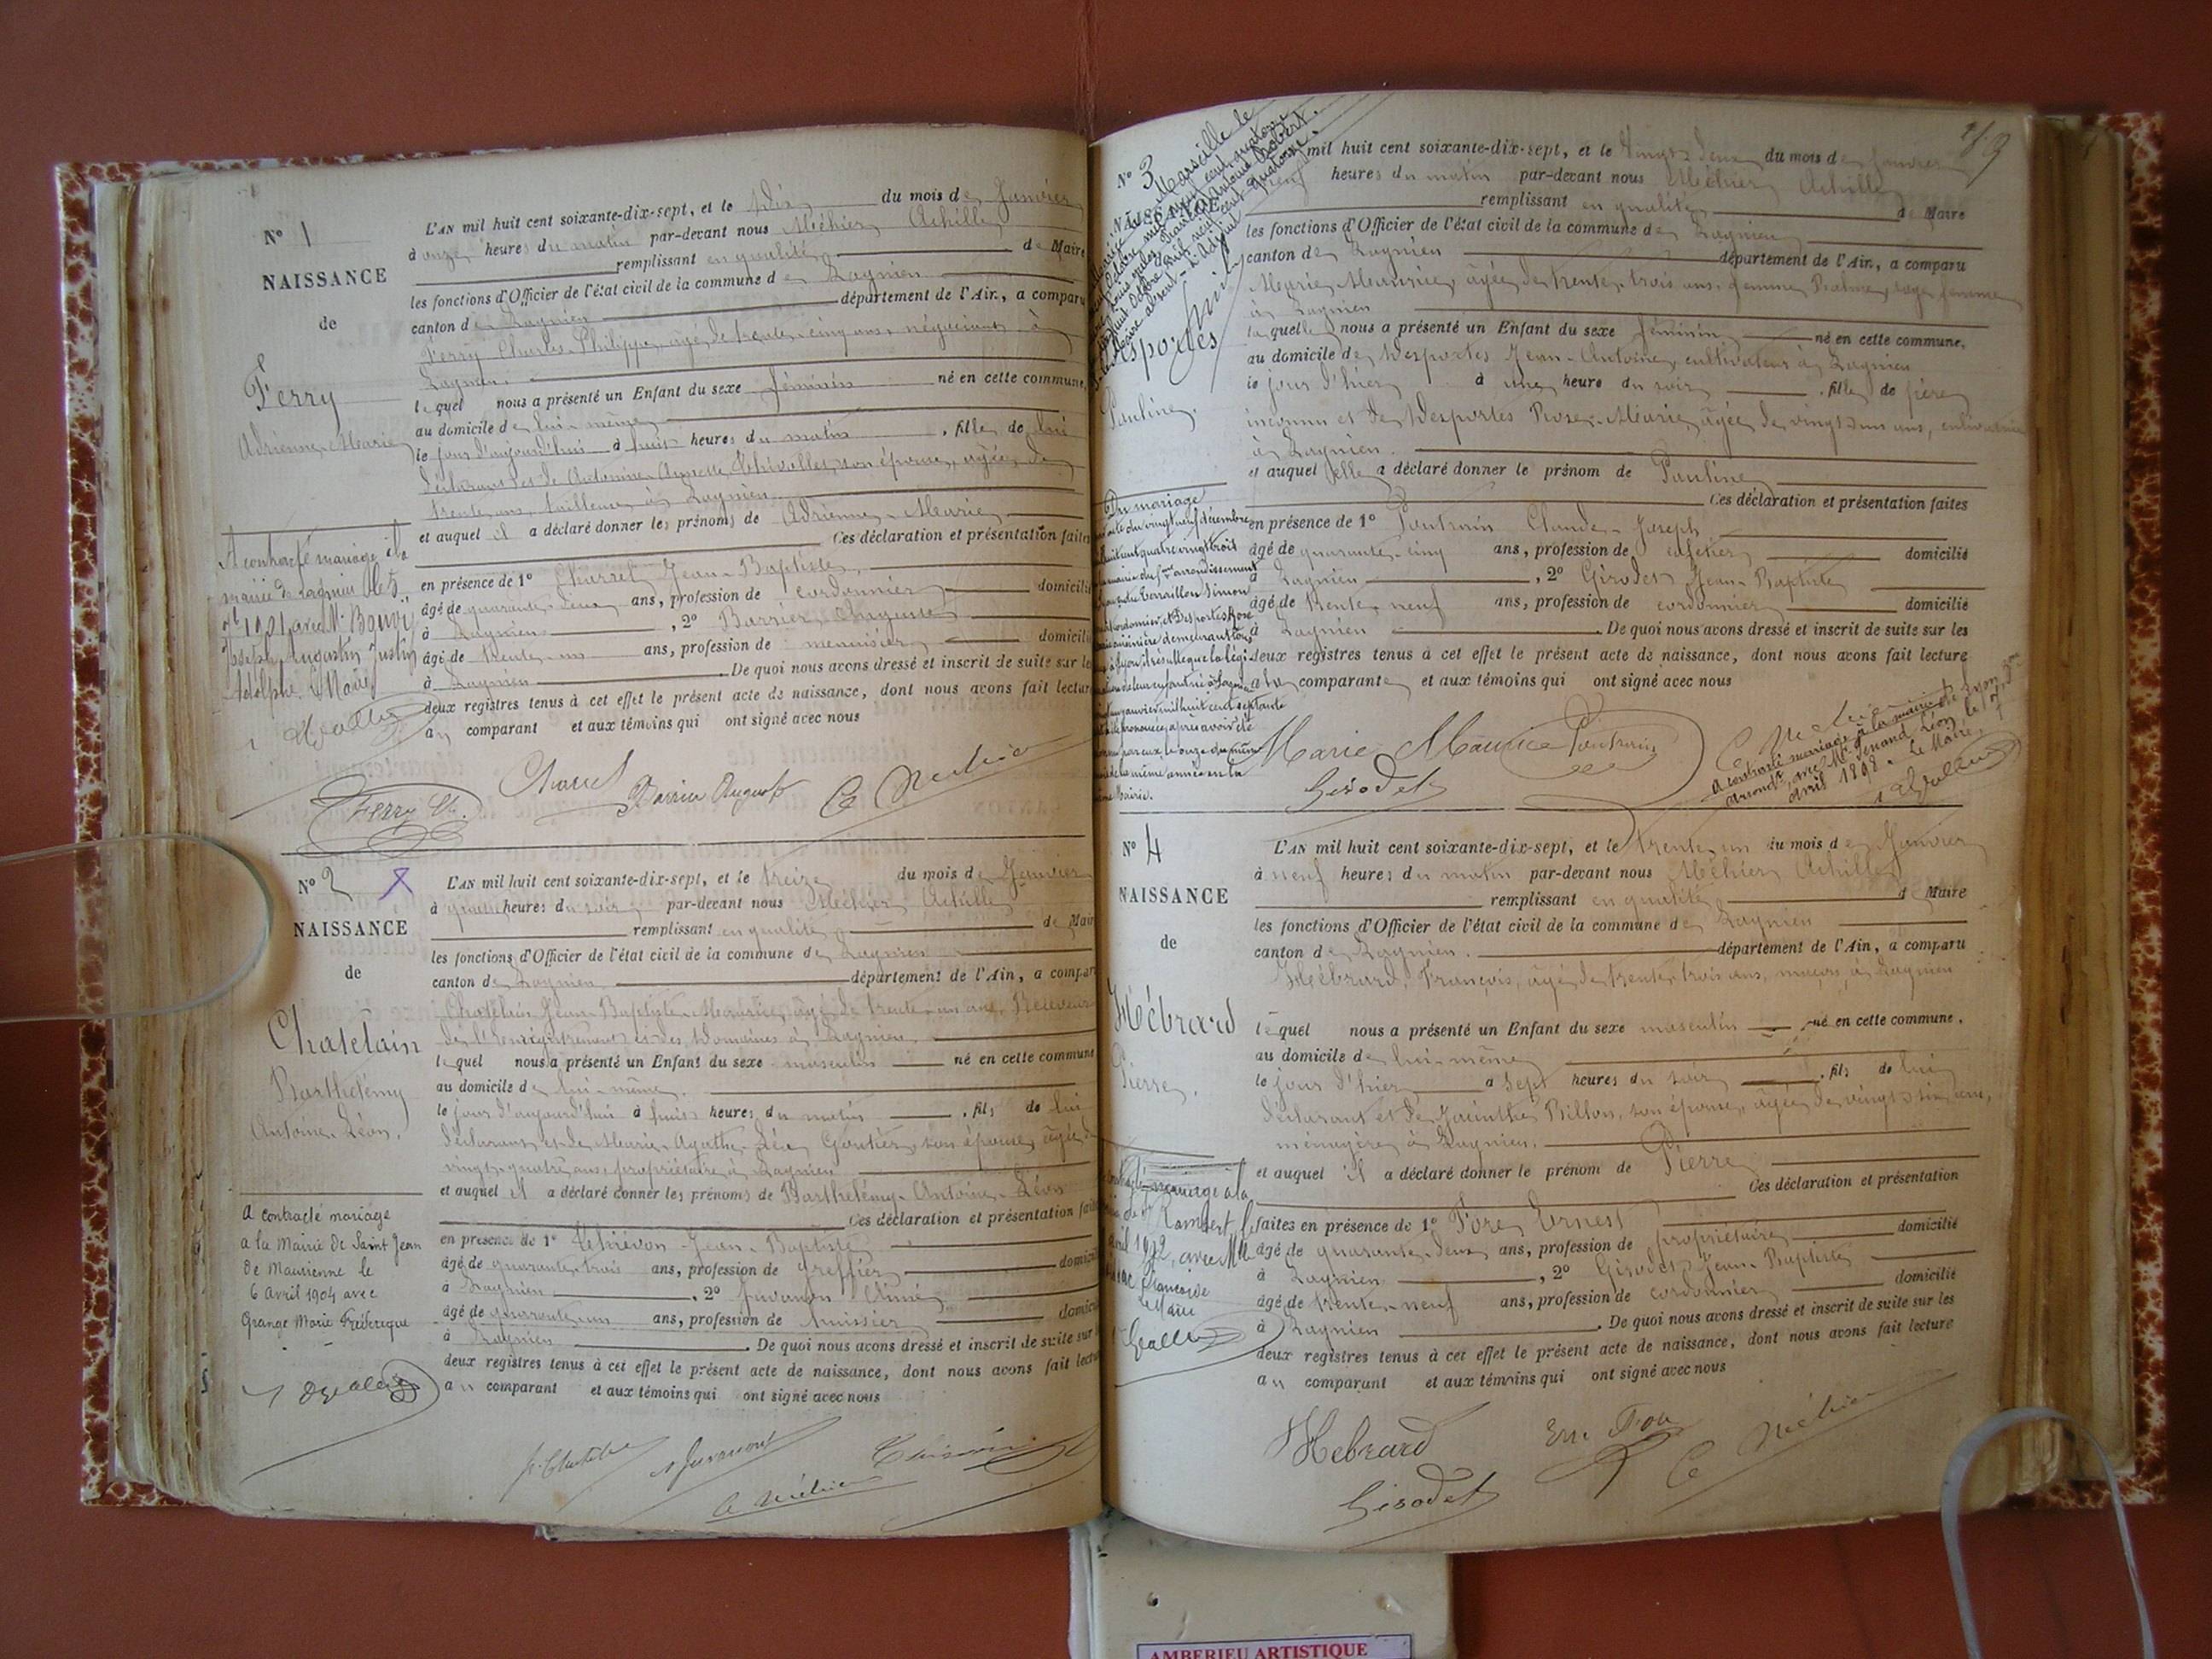 N° 1
NAISSANCE
de
Ferry
Adrienne-Marie
A contracté mariage à la
mairie de Lagnieu le 5
1901 avec Mr Bouvy
Joseph Augustin Justin
Adolphe. Le Maire
L'AN mil huit cent soixante-dix-sept, et le dix du mois de Janvier
à onze heures du matin par-devant nous Méhier Achille
remplissant en qualité de Maire
les fonctions d'Officier de l'état civil de la commune de Lagnieu
canton de Lagnieu département de l'Ain, a comparu
Ferry Charles-Philippe, âgé de trente-cinq ans, négociant à
Lagnieu.
lequel nous a présenté un Enfant du sexe féminin né en cette commune,
au domicile de lui-même
le jour d'aujourd'hui à huit heures du matin, fille de lui
déclarant et de Antonine Annette Thévollet, son épouse, âgée de
trente ans, tailleuse à Lagnieu.
et auquel il a déclaré donner les prénoms de Adrienne-Marie
Ces déclaration et présentation faites
en présence de 1° Charrel Jean-Baptiste,
âgé de quarante-deux ans, profession de cordonnier domicilié
à Lagnieu, 2° Barrier Auguste
âgé de trente-un ans, profession de menuisier domicilié
à Lagnieu. De quoi nous avons dressé et inscrit de suite sur les
deux registres tenus à cet effet le présent acte de naissance, dont nous avons fait lecture
au comparant et aux témoins qui ont signé avec nous
Ferry Ch. Charrel Barrier Auguste A Méhier
N° 2 X
NAISSANCE
de
Chatelain
Barthélémy
Antoine-Léon.
A contracté mariage
a la Mairie de Saint Jean
de Maurienne le
6 avril 1904 avec
Grange Marie Frédérique
L'AN mil huit cent soixante-dix-sept, et le treize du mois de Janvier
à quatre heures du soir par-devant nous Méhier Achille
remplissant en qualité de Maire
les fonctions d'Officier de l'état civil de la commune de Lagnieu
canton de Lagnieu département de l'Ain, a comparu
Chatelain Jean-Baptiste-Maurice, âgé de trente-un ans, Receveur
de l'Enregistrement et des Domaines à Lagnieu
lequel nous a présenté un Enfant du sexe masculin né en cette commune
au domicile de lui-même
le jour d'aujourd'hui à huit heures du matin, fils de lui
déclarant et de Marie-Agathe-Léa Gontier, son épouse, âgée de
vingt-quatre ans, propriétaire à Lagnieu
et auquel il a déclaré donner les prénoms de Barthélémy-Antoine-Léon
Ces déclaration et présentation faites
en présence de 1° Thévon Jean-Baptiste
âgé de quarante-trois ans, profession de greffier domicilié
à Lagnieu, 2° Juvanon Aimé
âgé de quarante-un ans, profession de huissier domicilié
à Lagnieu. De quoi nous avons dressé et inscrit de suite sur les
deux registres tenus à cet effet le présent acte de naissance, dont nous avons fait lecture
au comparant et aux témoins qui ont signé avec nous
A Méhier
N° 3
NAISSANCE
Marseille le
Desportes
Pauline.
Du mariage
vingt neuf décembre
huit cent quatre vingt trois
mairie du arrondissement
Simon
cordonnier, et Desportes Rose
cuisinière demeurant tous
à Lyon, il résulte que la légi
de leur enfant né à Lagnieu
janvier mil huit cent septante
prononcée, après avoir été
par eux, le onze du même
de la même année en la
Mairie.
mil huit cent soixante-dix-sept, et le vingt-deux du mois de Janvier
neuf heures du matin par-devant nous Méhier Achille
remplissant en qualité de Maire
les fonctions d'Officier de l'état civil de la commune de Lagnieu
canton de Lagnieu département de l'Ain, a comparu
Marie Maurice, âgée de trente-trois ans, femme sage femme
à Lagnieu
laquelle nous a présenté un Enfant du sexe féminin né en cette commune,
au domicile de Desportes Jean-Antoine, cultivateur à Lagnieu
le jour d'hier à une heure du soir, fille de père
inconnu et de Desportes Rose-Marie, âgée de vingt-un ans, cultivatrice
à Lagnieu.
et auquel elle a déclaré donner le prénom de Pauline
Ces déclaration et présentation faites
en présence de 1° Poutrain Claude-Joseph
âgé de quarante-cinq ans, profession de cafetier domicilié
à Lagnieu, 2° Girodet Jean-Baptiste
âgé de trente-neuf ans, profession de cordonnier domicilié
à Lagnieu. De quoi nous avons dressé et inscrit de suite sur les
deux registres tenus à cet effet le présent acte de naissance, dont nous avons fait lecture
à la comparante et aux témoins qui ont signé avec nous
Marie Maurice Poutrain
Girodet
A contracté mariage à la mairie de Lyon
arrond. avec Mr
avril 1898. Le Maire
N° 4
NAISSANCE
de
Hébrard
Pierre.
mariage à la
Rambert, le
avril 1912, avec Mlle
Françoise
Le Maire
L'AN mil huit cent soixante-dix-sept, et le trente-un du mois de Janvier
à neuf heures du matin par-devant nous Méhier Achille
remplissant en qualité de Maire
les fonctions d'Officier de l'état civil de la commune de Lagnieu
canton de Lagnieu. département de l'Ain, a comparu
Hébrard, François, âgé de trente-trois ans, maçon à Lagnieu
lequel nous a présenté un Enfant du sexe masculin né en cette commune.
au domicile de lui-même
le jour d'hier à sept heures du soir, fils de lui
déclarant et de Jacinthe Billon, son épouse, âgée de vingt-six ans,
ménagère à Lagnieu.
et auquel il a déclaré donner le prénom de Pierre
Ces déclaration et présentation
faites en présence de 1° Fore Ernest domicilié
âgé de quarante-deux ans, profession de propriétaire
à Lagnieu, 2° Girodet Jean-Baptiste
âgé de trente-neuf ans, profession de cordonnier domicilié
à Lagnieu. De quoi nous avons dressé et inscrit de suite sur les
deux registres tenus à cet effet le présent acte de naissance, dont nous avons fait lecture
au comparant et aux témoins qui ont signé avec nous
Hebrard
Girodet A Méhier
AMBERIEU ARTISTIQUE